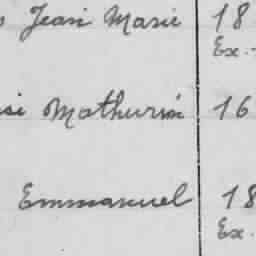 Jean Marie 18
Ex.
Mathurin 16
Emmanuel 18
Ex.